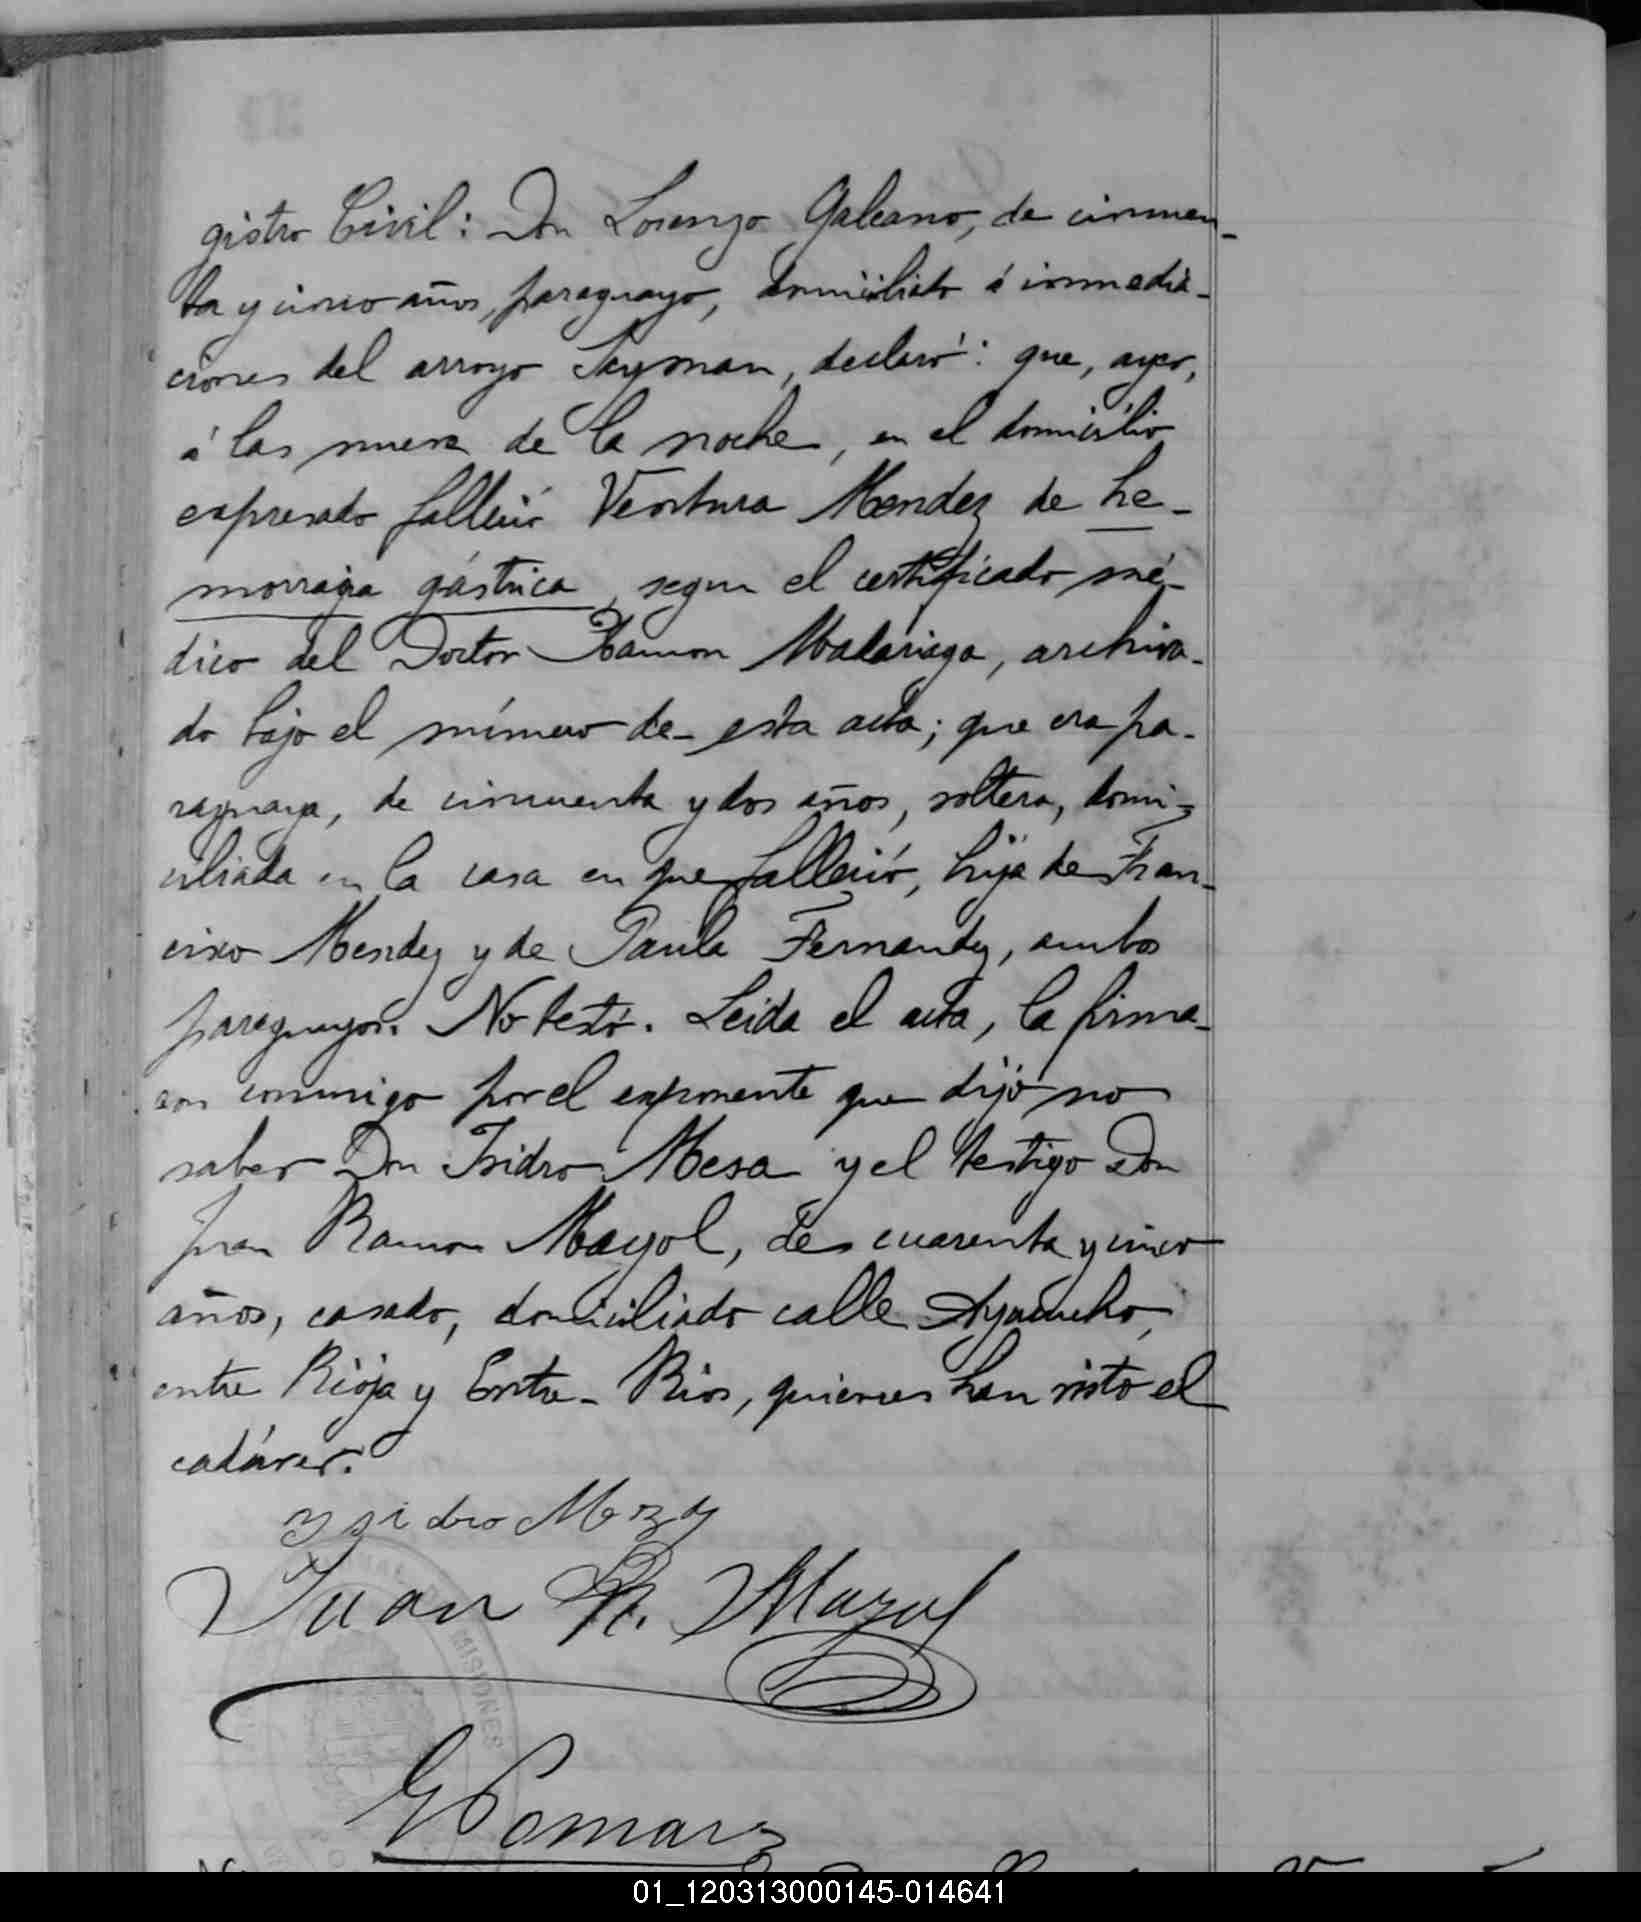 gistro Civil: Don Lorenzo Galeano, de cincuen-
ta y cinco años, paraguayo, domiciliado á inmedia-
ciones del arroyo Zayman, declaró: que, ayer,
á las nueve de la noche, en el domicilio
expresado falleció Ventura Mendez de he-
morragia gástrica, segun el certificado mé-
dico del Doctor Ramon Madariaga, archiva-
do bajo el número de esta acta; que era pa-
raguaya, de cincuenta y dos años, soltera, domi-
ciliada en la casa en que falleció, hija de Fran-
cisco Mendez y de Paula Fernandez, ambos
paraguayos. No testó. Leida el acta, la firma-
ron conmigo por el exponente que dijo no
saber Don Isidro Mesa y el testigo Don
Juan Ramon Mayol, de cuarenta y cinco
años, casado, domiciliado calle Ayacucho,
entre Rioja y Entre-Rios, quienes han visto el
cadáver.
Ysidro Meza
Juan R. Mayol
MISIONES
01_120313000145-014641